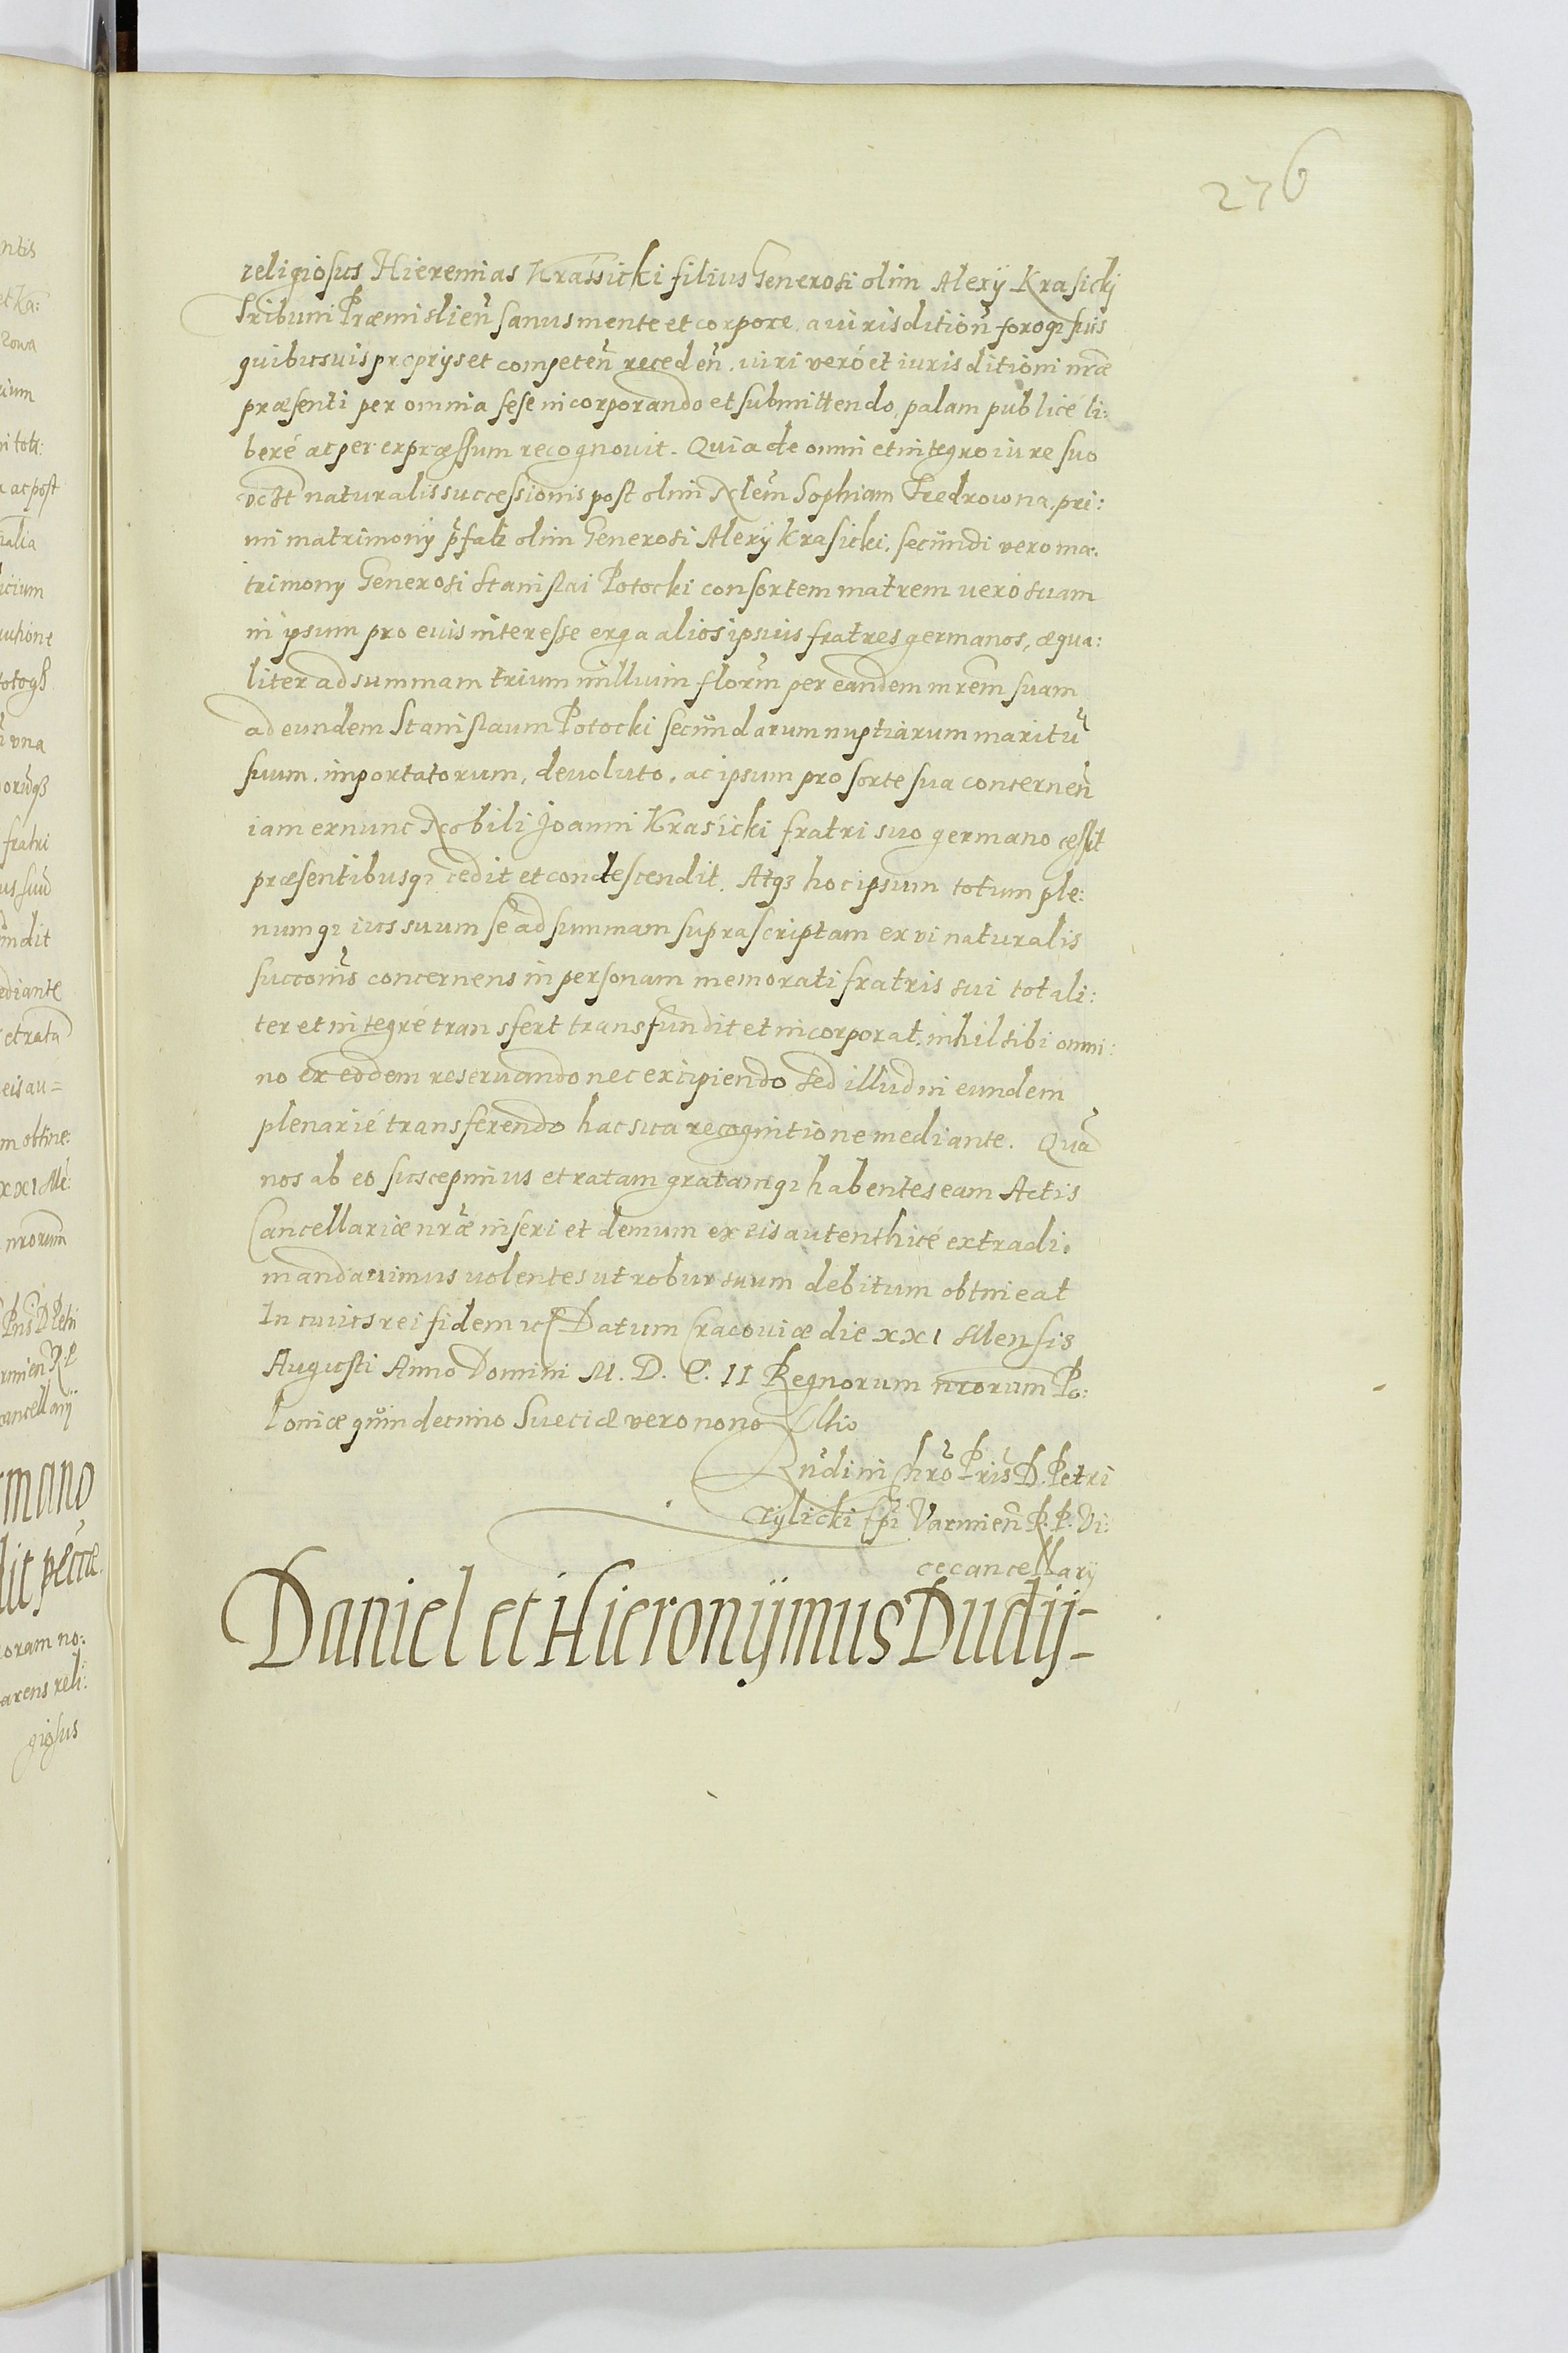 276
religiosus Hieremias Krassicki filius Generosi olim Alexÿ Krasickj
Tribuni Præmislien̄ sanus mente et corpore, a iurisdition̄ foroqȝ suis
quibusuis proprÿs et competen̄ receden̄. iuri veró et iurisditioni nr̄æ
præsenti per omnia sese incorporando et submittendo, palam publicé li:
beré ac per expræssum recognouit. Quia de omni et integro iure suo
naturalis successionis post olim Nlem̄ Sophiam Fredrowna, pri:
mi matrimonÿ p̄fati olim Generosi Alexÿ Krasicki, secundi vero ma:
trimonÿ Generosi Stanislai Potocki consortem matrem veró suam
in ipsum pro euis interesse erga alios ipsuis fratres germanos, æqua:
liter ad summam trium millium florm̄ per eandem mrem̄ suam
ad eundem Stanislaum Potocki secundarum nuptiarum maritū
suum. importatorum, deuoluto, ac ipsum pro sorte sua concernen̄
iam ex nunc Nobili Joanni Krasicki fratri suo germano cessit
præsentibusqȝ cedit et condescendit. Atqȝ hoc ipsum totum ple:
numqȝ ius suum se ad summam suprascriptam ex vi naturalis
succom̄s concernens in personam memorati fratris sui totali:
ter et integré transfert transfundit et incorporat, inhil sibi omni:
no ex eodem reseruando nec excipiendo sed illud in eundem
plenarié transferendo hac sua recognitione mediante. Quā
nos ab eo suscepimus et ratam gratamqȝ habentes eam Actis
Cancellariæ nr̄æ inseri et demum ex eis autenthicé extradi.
mandauimus uolentes ut robur suum debitum obtineat
In cuius rei fidem Datum Cracouiæ die XXI Mensis
Augusti Anno Domini M. D. C. II Regnorum nrorum Po:
loniæ quin decimo Sueciæ vero nono
Rn̄di in Chrō Pris̄ D. Petri
Tylicki Ep̄i Varmien̄ R. P. Vi:
cecancellarÿ
Daniel et Hieronÿmus Dudÿ-